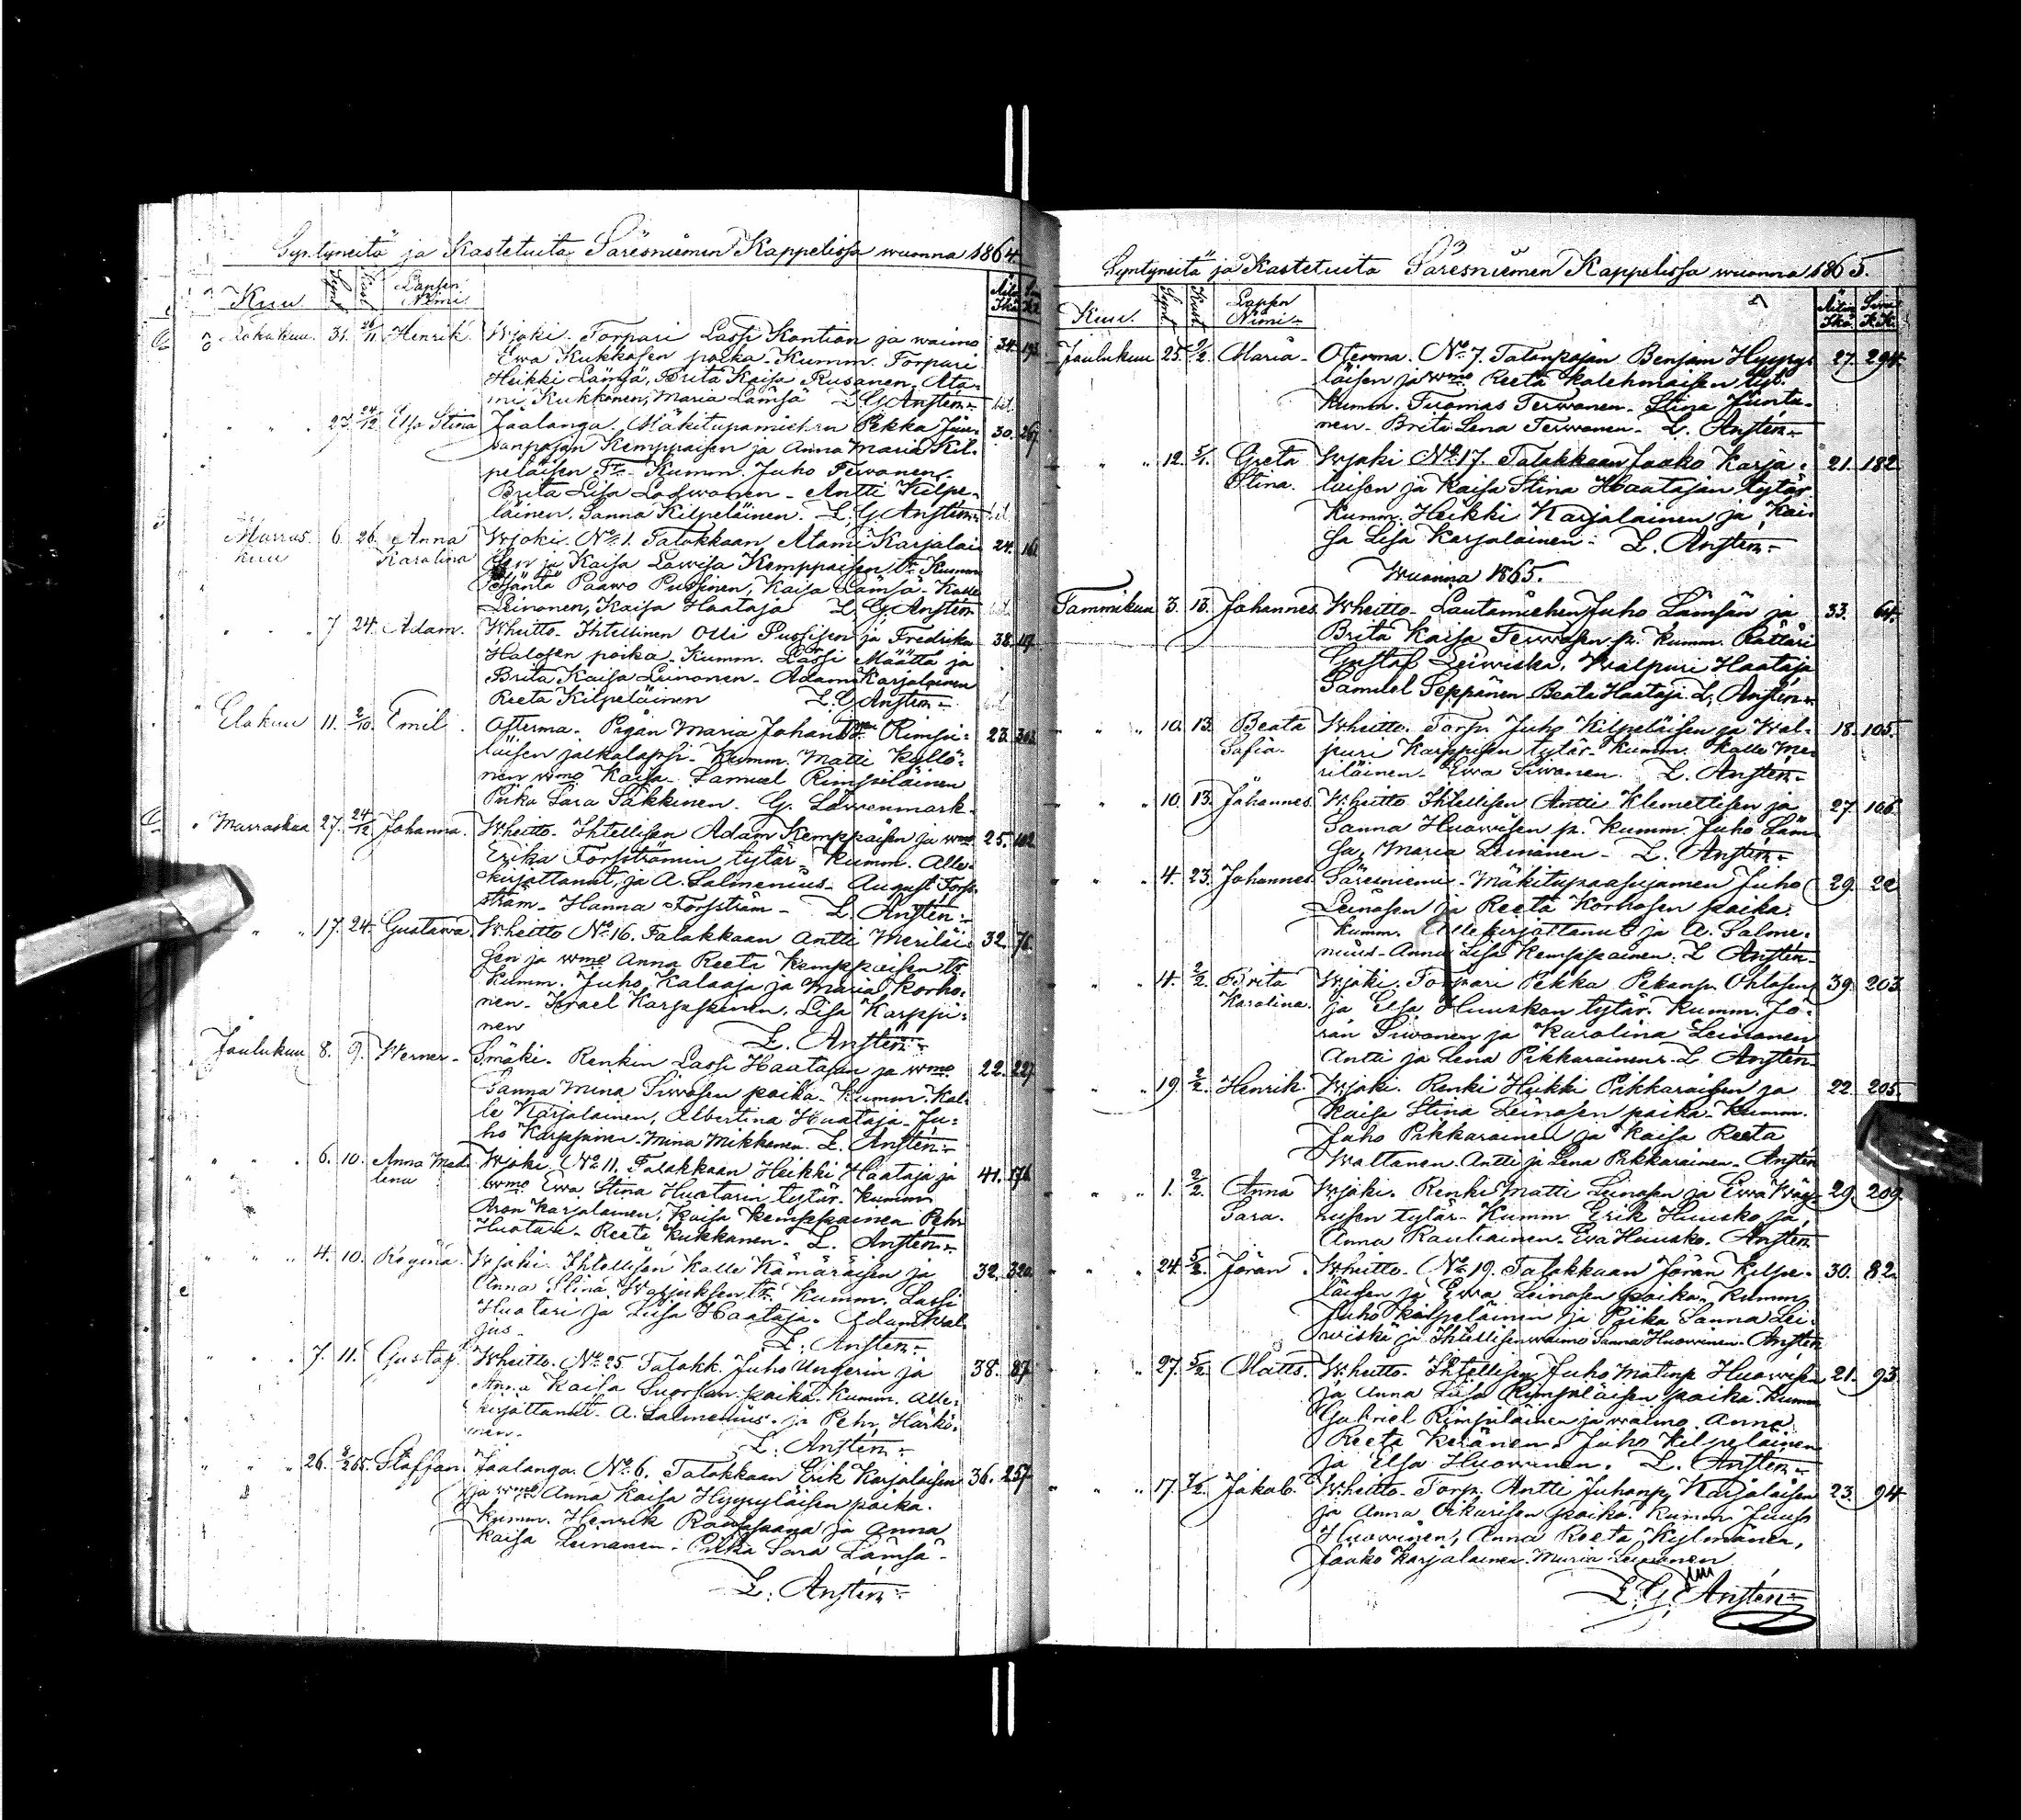 Syntyneitä ja Kastetuita Säresniemen Kappelissa wuonna 1864
Kuu Synt Kast Lapsen Nimi Äitin Ikä
Lokakuu. 31. 26/11 Henrik. Wjoki. Torpari Lassi Kontion ja waimo 34.
Ewa Kukkosen poika. Kumm. Torpari
Heikki Lämsä, Brita Kaisa Rusanen, Ata-
mi Kukkonen, Maria Lämsä L. G. Anstén
" " 27. 24/12 Elsa Stina Jaalanga. Mäkitupamiehen Pekka Juu- 30. 267
sanpojan Kemppaisen ja Anna Maria Kil-
peläisen Tr. Kumm. Juho Terwonen,
Brita Lisa - Antti Kilpe-
läinen. Sanna Kilpeläinen. L. G. Anstén
Marras-
kuu 6. 26. Anna
Karolina Wjoki. No 1. Talokkaan Atami Karjalai- 24. 161
sen ja Kaisa Lowisa Kemppaisen Tr. Kumm.
Isäntä Paawo Pussinen, Kaisa Lämsä - Kalle
Leinonen, Kaisa Haataja L. G. Anstén
" " 7 24. Adam. Wheitto. Ihtellinen Olli Pussisen ja Fredrika 38.
Halosen poika. Kumm. Lassi Määttä ja
Brita Kaisa Leinonen - Adam Karjalainen
Reeta Kilpeläinen L. G. Anstén
Elokuu 11. 2/10. Emil. Otterma. Piijan Maria Johanna Rimpi- 23. 302
läisen jalkalapsi. Kumm. Matti Kallö-
nen wmo Kaisa. Samuel Rimpiläinen
Piika Sara Säkkinen. G. Löwenmark.
Marraskuu 27. 24/12 Johanna. Wheitto. Ihtellisen Adam Kemppaisen ja wmo 25. 102
Erika Forsströmin tytär. Kumm. Alle-
kirjottanut, ja A. Salmenius. August Fors-
ström. Hanna Forsström. L. Anstén
" " 17. 24. Gustawa. Wheitto No 16. Talokkaan Antti Meriläi- 32. 76.
sen ja wmo Anna Reeta Kemppaisen tr.
Kumm. Juho Kalaaja ja Maria Korho-
nen. Israel Karppinen, Lisa Karppi-
nen L. Anstén
Joulukuu 8. 9. Werner. Smäki. Renkin Lassi Haatajan ja wmo 22. 227
Sanna Mina Siwosen poika. Kumm. Kal-
le Karjalainen, Albertina Huataja. Ju-
ho Karppinen. Mina Mikkonen. L. Anstén
" " 6. 10. Anna Mada-
lena Wjoki No 11. Talokkaan Heikki Haataja ja 41. 176
wmo Ewa Stina Huotarin tytär. Kumm.
Aron Karjalainen, Kaisa Kemppainen Pehr
Huotari. Reeta Kukkonen. L. Anstén
" " 4. 10. Regina. Wjoki. Ihtellisen Kalle Kämäräisen ja 32. 320.
Anna Stina Warjuksen tr. Kumm. Lassi
Huotari ja Liisa Haataja. Adam War-
jus. L. Anstén
" " 7. 11. Gustaf. Wheitto. No 25 Talokk. Juho Ungerin ja 38. 87
Anna Kaisa Suorsan poika. Kumm. Alle-
kirjottanut. A. Salmenius. ja Pehr Härkö-
nen. L. Anstén
" " 26. 8/2 65. Staffan Jaalanga. No 6. Talokkaan Erik Karjalaisen 36. 257
ja wmo Anna Kaisa Hyyryläisen poika.
Kumm. Henrik ja Anna
Kaisa Leinonen - Piika Sara Lämsä -
L. Anstén
Syntyneitä ja Kastetuita Säresniemen Kappelissa wuonna 1865.
Kuu. Synt Kast Lapsen Nimi Äitin Ikä. K.K.
Joulukuu 25. 2/2. Maria. Oterma. No 7. Talonpojan Benjam Hyyry- 27. 294
läisen ja wmo Reeta Kolehmaisen tyt.
Kumm. Tuomas Terwonen. Stina Juntu-
nen. Brita Lena Terwonen. L. Anstén
" " 12. 5/1. Greta
Stina. Wjoki No 17. Talokkaan Jaako Karja- 21. 182
laisen ja Kaisa Stina Haatajan tytär
Kumm. Heikki Karjalainen ja Kai-
sa Lisa Karjalainen. L. Anstén
Wuonna 1865.
Tammikuu 3. 13. Johannes. Wheitto. Lautamiehen Juho Lämsän ja 33. 64.
Brita Kaisa Terwosen p. Kumm. Rättäri
Gustaf Leiwiska, Walpuri Haataja
Samuel Seppänen Beata Haataja L. Anstén
" " 10. 13. Beata
Sofia. Wheitto. Torp. Juho Kilpeläisen ja Wal- 18. 105.
puri Karppisen tytär. Kumm. Kalle Me-
riläinen. Ewa Siwonen. L. Anstén
" " 10. 13. Johannes. Wheitto Ihtellisen Antti Klemettisen ja 27. 106.
Sanna Huowisen p. Kumm. Juho Läm-
sä, Maria Leinonen. L. Anstén
" " 4. 23. Johannes. Säresniemi. Mäkitupaasujamen Juho 29. 22
Leinosen ja Reeta Korhosen poika.
Kumm. Allekirjottanut ja A. Salme-
nius. Anna Lisa Kemppainen. L. Anstén
" " 4. 2/2 Brita
Karolina. Wjoki. Torpari Pekka Pekanp. Ohtosen 39. 203
ja Elsa Huuskon tytär. Kumm. Jö-
ran Siwonen ja Karolina Leinonen
Antti ja Lena Pikkarainen. L. Anstén
" " 19. 2/2. Henrik. Wjoki. Renki Heikki Pikkaraisen ja 22. 205.
Kaisa Stina Leinosen poika. Kumm.
Juho Pikkarainen ja Kaisa Reeta
Waltanen. Antti ja Lena Pikkarainen. Anstén
" " 1. 2/2. Anna
Sara. Wjoki. Renki Matti Leinosen ja Ewa Wäy- 29. 209.
rysen tytär. Kumm Erik Huusko ja
Anna Rautiainen. Eva Huusko. Anstén
" " 24. 5/2. Jöran. Wheitto. No 19. Talokkaan Jöran Kilpe- 30. 82
läisen ja Ewa Leinosen poika. Kumm.
Juho Kilpeläinen ja Piika Sanna Lei-
wiskä ja Ihtellisen waimo Sanna Huowinen. Anstén
" " 27. 5/2. Matts. Wheitto. Ihtellisen Juho Matinp. Huowisen 21. 93
ja Anna Liisa Rimpiläisen poika. Kumm
Gabriel Rimpiläinen ja waimo Anna
Reeta Keränen. Juho Kilpeläinen
ja Elsa Huowinen. L. Anstén
" " 17. 7/2. Jakob. Wheitto. Torp. Antti Juhonp. Karjalaisen 23. 94
ja Anna Oikarisen poika. Kumm. Juuso
Huowinen, Anna Reeta Kylmänen,
Jaako Karjalainen. Maria Leinonen
L. G. Anstén